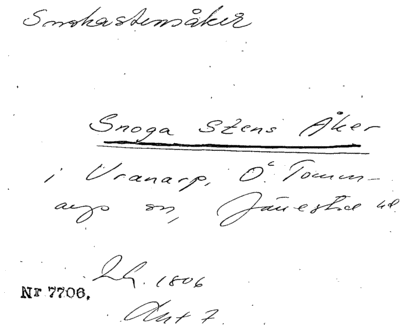 Snokastensåker
Snoga Stens Åker
i Vranarp, Ö. Tomm-
arps sn, Järrestad hd
1806
Nr 7706.
Akt 7